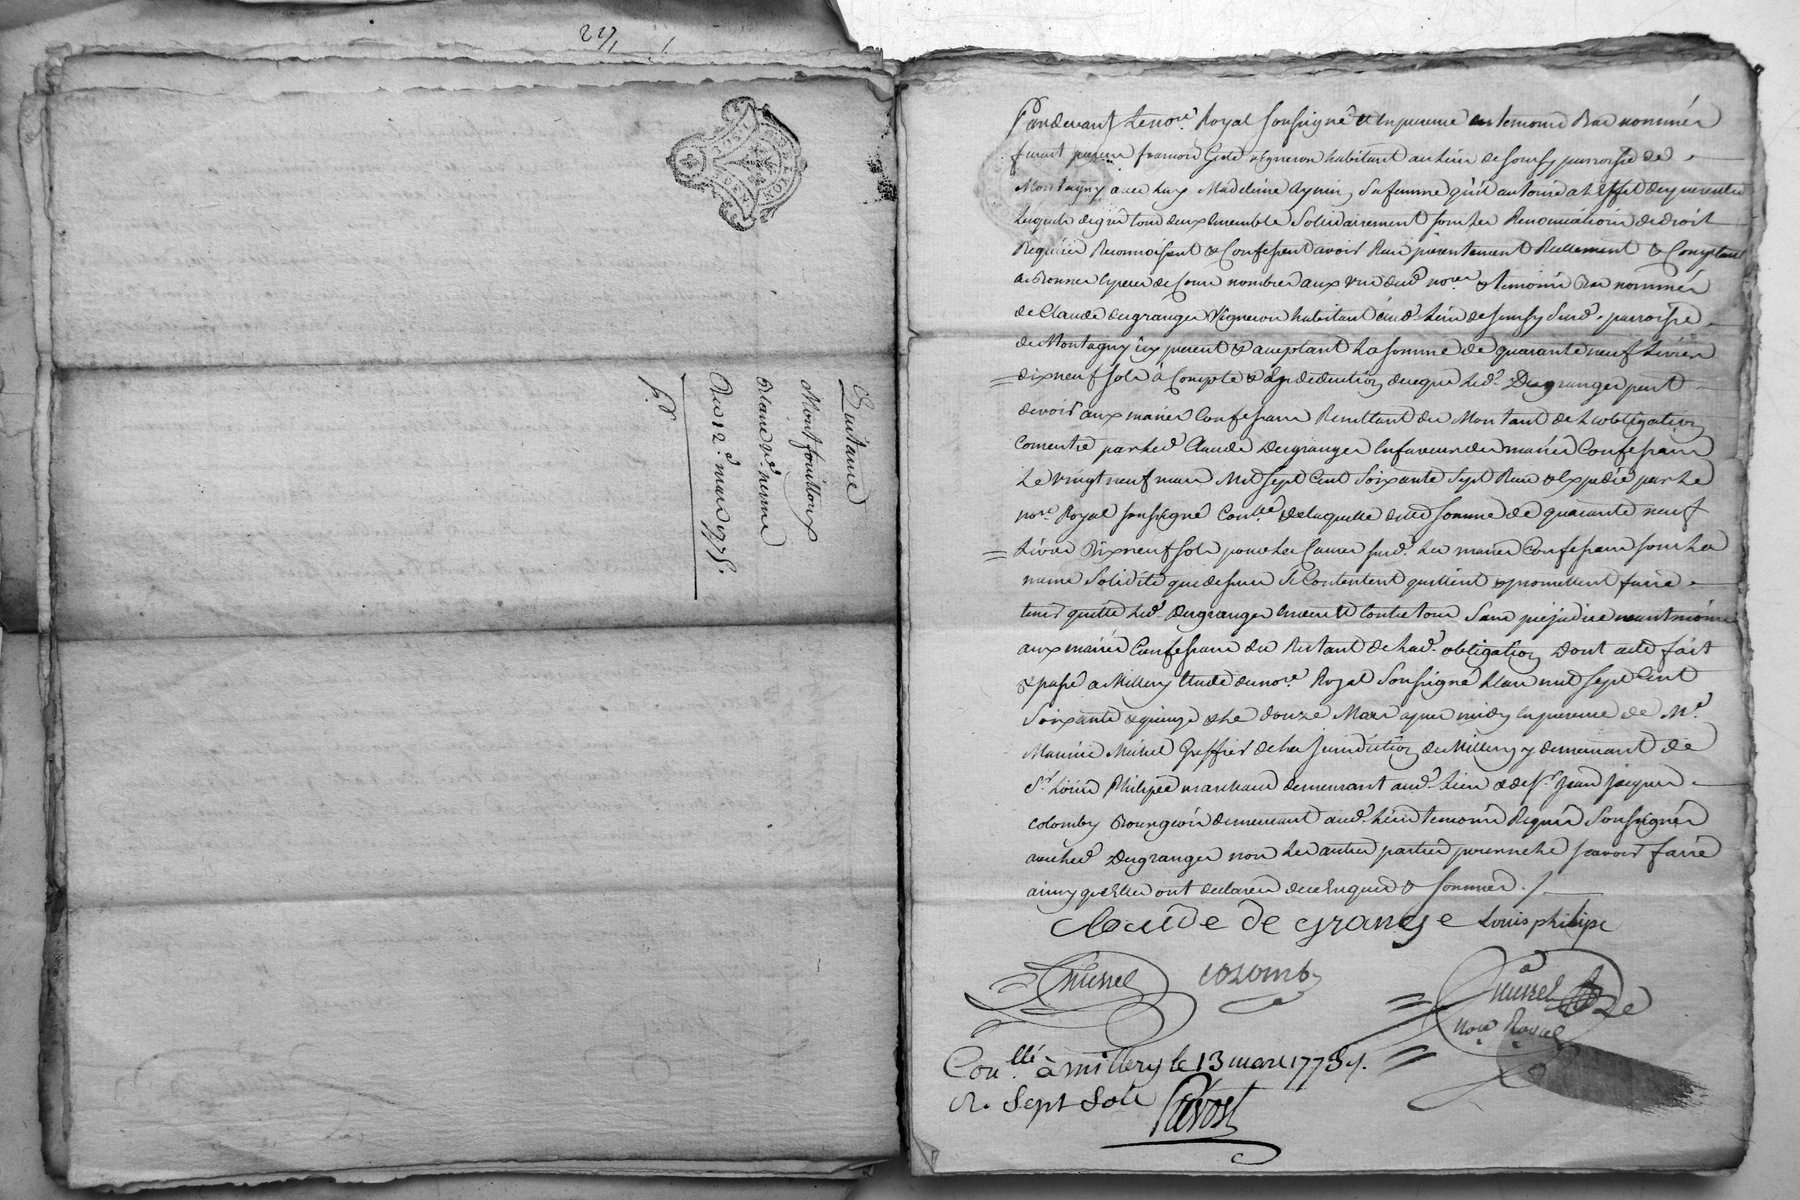 227
Quittance
Montfouilloux
Blanc Vᵉ perme
Du 12ᵉ mars 1775.
Pardevant Le noʳᵉ Royal soussigné et en presence des temoins Bas nommés
furent presens francois Gelé vigneron habitant au lieu de soursy parroisse de
Montagny avec luy Madeleine aynin sa femme qu'il autorise a l'effet des presentes
lesquels de gré tous deux ensemble solidairement sous les Renonciations de droit
Requises Reconnoissent & Confessent avoir Receu presentement Reellement & Comptant
en Bonnes especes de Cours nombrées aux vue dud noʳᵉ & temoins Bas nommés
de Claude degranges Vigneron habitant aud. lieu de soursy susd. parroisse
de Montagny icy present & acceptant la somme de quarante neuf Livres
dixneuf sols à Compte & En deduction de ce que led. Degranges peut
devoir aux mariés Confessans Resultant du Montant de L'obligation
consentie par led Claude Degranges En faveur des mariés Confessans
le vingt neuf mars mil sept Cent soixante sept Receu & Expedié par le
noʳᵉ Royal soussigné Conˡˡᵉ de laquelle ditte somme de quarante neuf
Livres Dixneuf sols pour les Causes susd. les mariés Confessans sous la
meme solidité que dessus se Contentent quittent & promettent faire
tenir quitte led. Degranges envers et contre tous sans prejudice neantmoins
aux mariés Confessans du Restant de lad. obligation Dont acte fait
& passé a Millery Etude du noʳᵉ Royal soussigné L'an mil sept Cent
soixante & quinze & le douze Mars apres midy En presence de Mᵉ
Maurice Mussel Greffier de la Jurisdiction de Millery y demeurant de
Sʳ Louis Philipe marchand demeurant aud. lieu & de Sʳ Jean Jacques
colomby Bourgeois demeurant aud. lieu temoins Requis soussignés
avec led Degranges non les autres parties pour ne le scavoir faire
ainsy qu'Elles ont declaré de ce Enquis & sommés ./.
Claude de grange Louis philipe
Mussel colomby Mussel
noʳᵉ Royal
Conˡˡᵉ à millery le 13 mars 1775
R. Sept Sols
Prevost